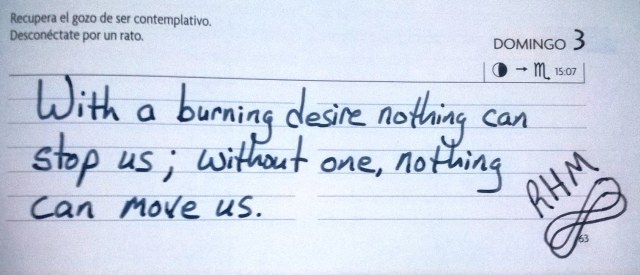 Recupera el gozo de ser contemplativo.
Desconéctate por un rato.
DOMINGO 3
◗ → ♏ 15:07
With a burning desire nothing can
stop us; without one, nothing
can move us.
RHM
63